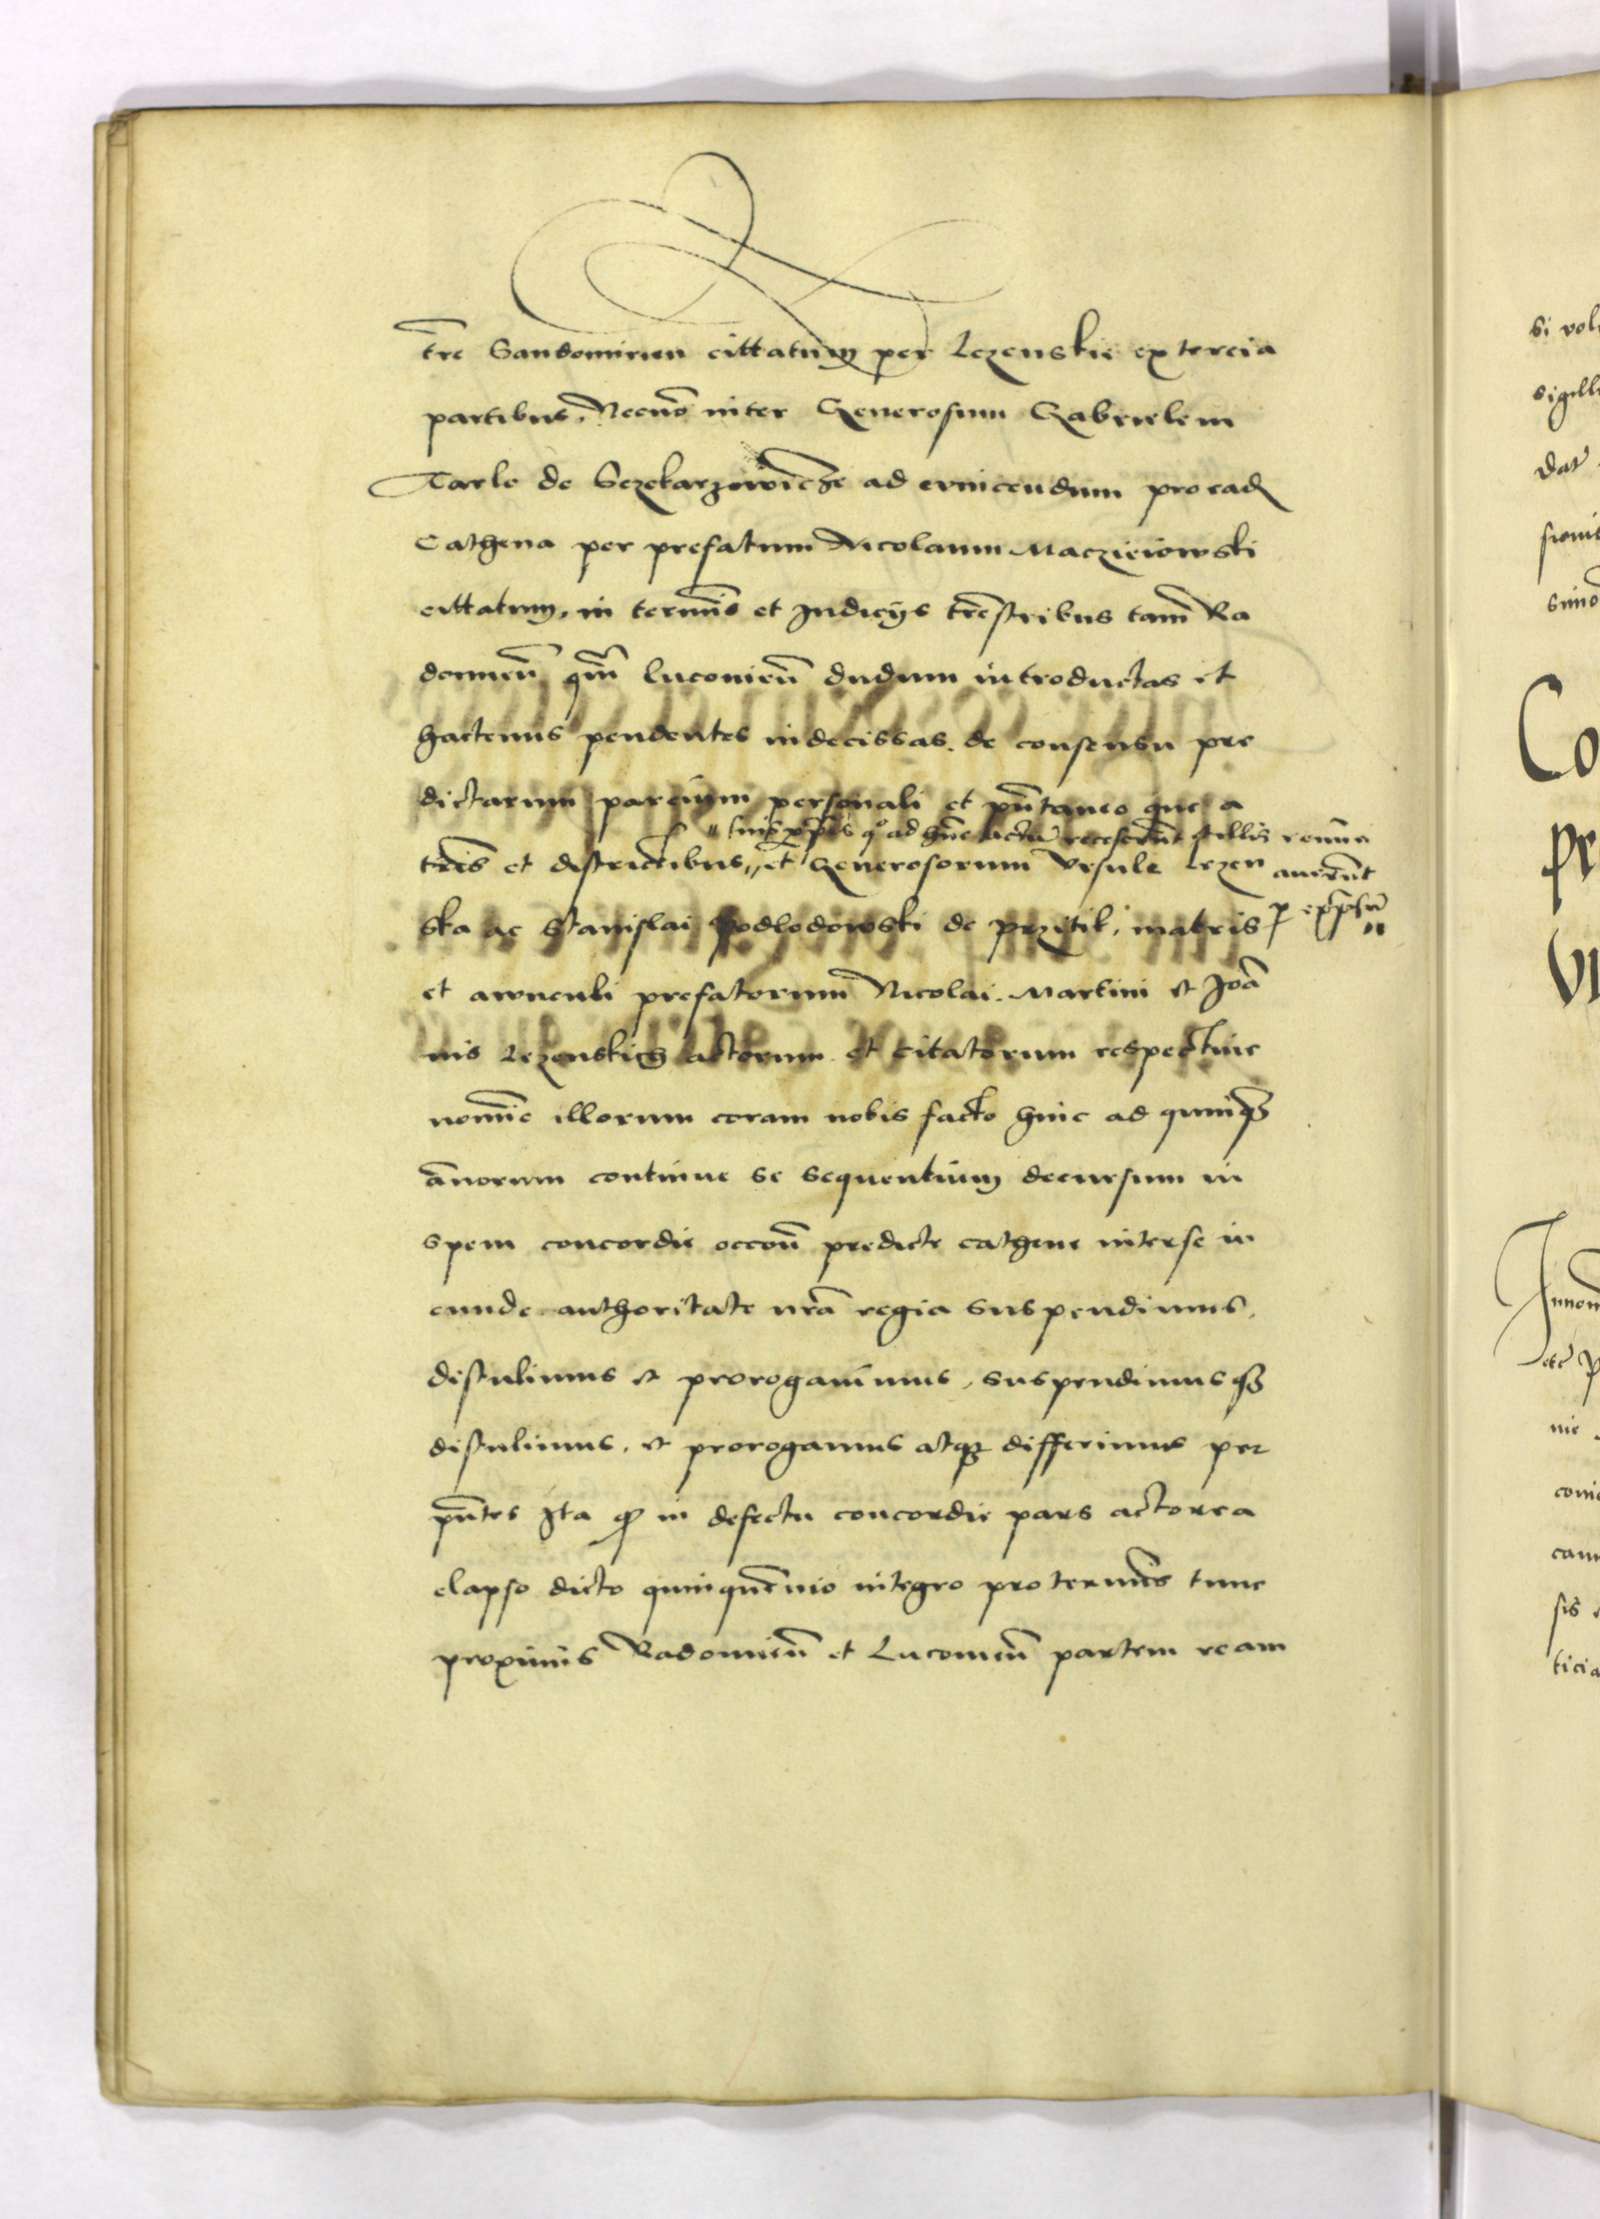 tr̃e Sandomirien cittatum per Lezenskie ex tercia
partibus, Necnõ inter Generosum Gabrielem
Tarlo de Sczekarzowicze ad evincendum pro ead
Cathena per prefatum Nicolaum Maczieiowski
cittatum, in termĩs et Judicijs tr̃estribus tam̃ Ra
domieñ qm̃ Luconieñ dudum introductas et
hactenus pendentes indecissas, de consensu pre
dictarum parcium personali et pñtaneo que a
suis qo ad hũc actũ recesserũt et illis renũn
tr̃is et districtibus,, et Generosorum Ursule Lezen averũt
ska ac Stanislai Podlodowski de Przitik, matris p exp̃ssũ
et avunculi prefatorum Nicolai, Martini et Joã
nis Lezenskich actorum et citatorum respective
nomĩe illorum coram nobis facto hinc ad quinqȝ
ãnorum continue se sequentium decursum in
spem concordie occoñ predicte cathene inter se in
eunde authoritate nrã regia suspendimus,
distulimus et prorogavimus, suspendimusqȝ
distulimus, et prorogamus atqȝ differimus per
pñtes Ita qȝ in defectu concordie pars actorea
elapso dicto quinquẽnio integro pro termĩs tunc
proximis Radomieñ et Luconieñ partem ream
si vol
sigill
Dat
Co
pr
VI
nie